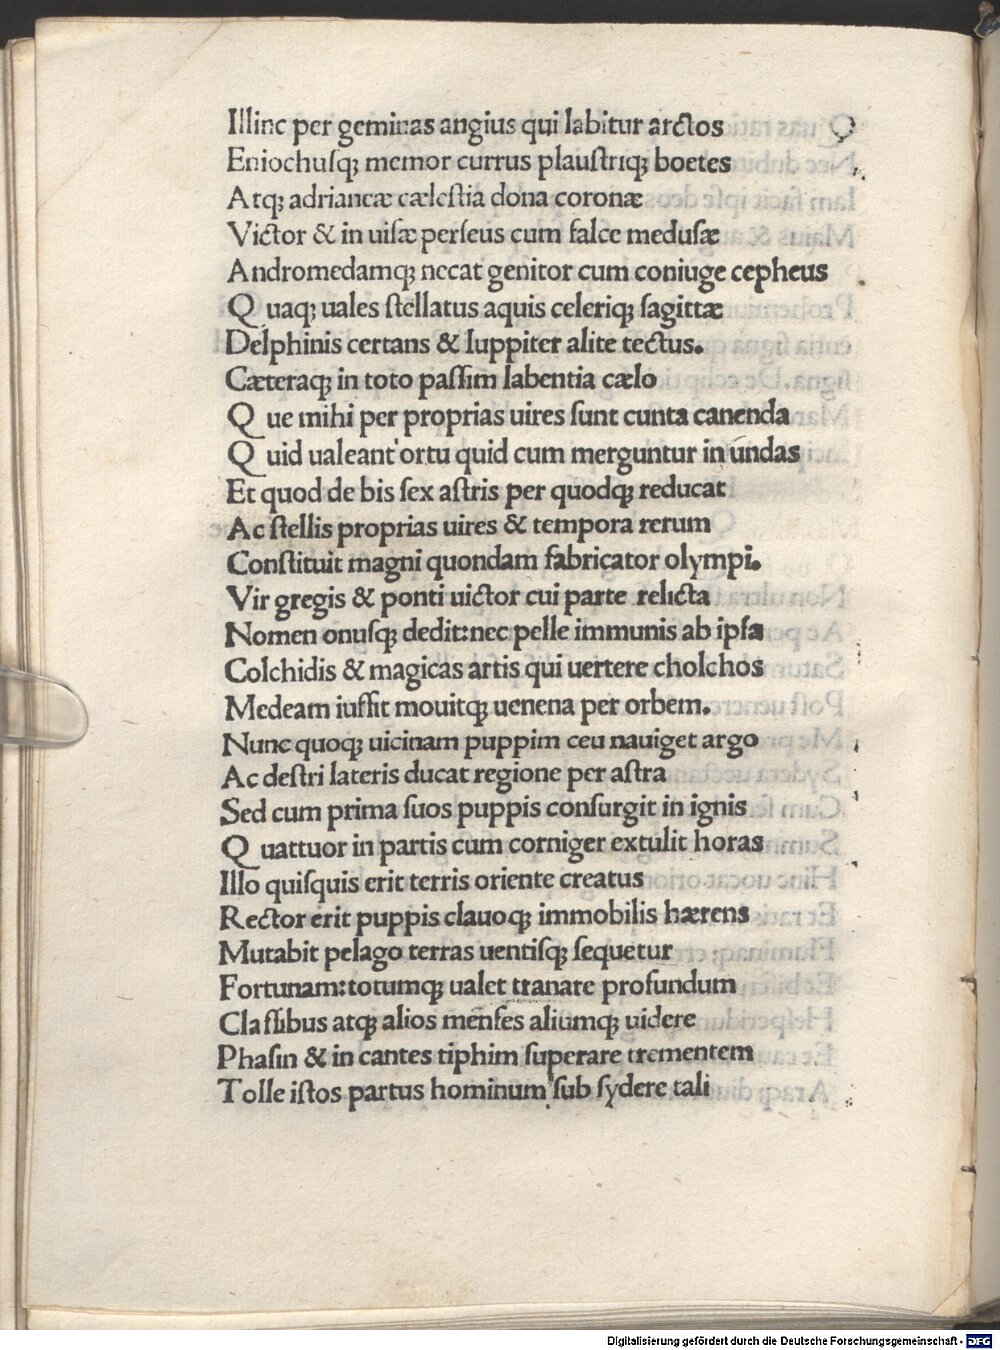 Illinc per geminas angius qui labitur arctos
Eniochuſqꝫ memor currus plauſtriqꝫ boetes
Atqꝫ adrianeæ cæleſtia dona coronæ
Victor & in uiſæ perſeus cum falce meduſæ
Andromedamqꝫ necat genitor cum coniuge cepheus
Quaqꝫ uales ſtellatus aquis celeriqꝫ ſagittæ
Delphinis certans & Iuppiter alite tectus.
Cæteraqꝫ in toto paſſim labentia cælo
Que mihi per proprias uires ſunt cunta canenda
Quid ualeant ortu quid cum merguntur in undas
Et quod de bis ſex aſtris per quodqꝫ reducat
Ac ſtellis proprias uires & tempora rerum
Conſtituit magni quondam fabricator olympi.
Vir gregis & ponti uictor cui parte relicta
Nomen onuſqꝫ dedit:nec pelle immunis ab ipſa
Colchidis & magicas artis qui uertere cholchos
Medeam iuſſit mouitqꝫ uenena per orbem.
Nunc quoqꝫ uicinam puppim ceu nauiget argo
Ac deſtri lateris ducat regione per aſtra
Sed cum prima ſuos puppis conſurgit in ignis
Quattuor in partis cum corniger extulit horas
Illo quiſquis erit terris oriente creatus
Rector erit puppis clauoqꝫ immobilis hærens
Mutabit pelago terras uentiſqꝫ ſequetur
Fortunam:totumqꝫ ualet tranare profundum
Claſſibus atqꝫ alios menſes aliumqꝫ uidere
Phaſin & in cantes tiphim ſuperare trementem
Tolle iſtos partus hominum ſub ſydere tali
Digitalisierung gefördert durch die Deutsche Forschungsgemeinschaft - DFG